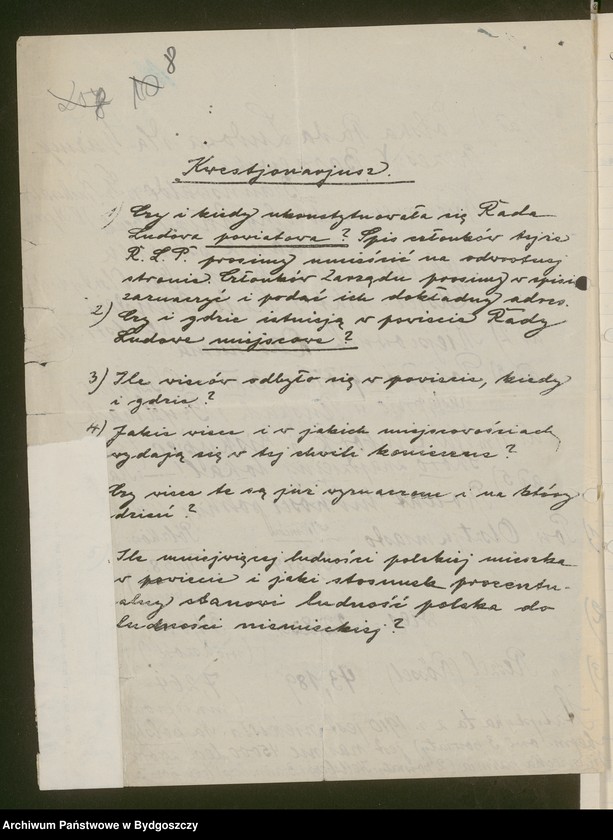 8
Kwestjonarjusz.
1) Czy i kiedy ukonstytuowała się Rada
Ludowa powiatowa? Spis członków tejże
R. L. P. prosimy umieścić na odwrotnej
stronie. Członków Zarządu prosimy w spisie
zaznaczyć i podać ich dokładny adres.
2) Czy i gdzie istnieją w powiecie Rady
Ludowe miejscowe?
3) Ile wieców odbyło się w powiecie, kiedy
i gdzie?
4) Jakie wiece i w jakich miejscowościach
wydają się w tej chwili konieczne?
Czy wiece te są już wyznaczone i na który
dzień?
Ile mniejwięcej ludności polskiej mieszka
w powiecie i jaki stosunek procentu-
alny stanowi ludność polska do
ludności niemieckiej?
Archiwum Państwowe w Bydgoszczy